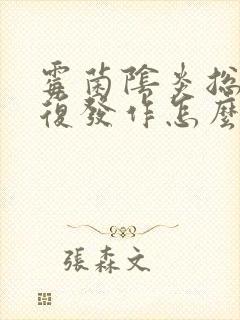 霉菌陰炎總
復發作怎麼
張森文